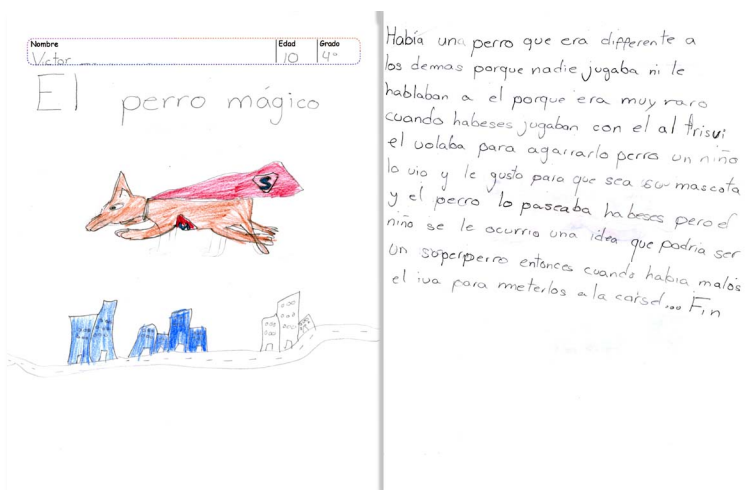 Nombre
Edad
Grado
Victor
10
4º
El perro mágico
S
Había una perro que era differente a
los demas porque nadie jugaba ni le
hablaban a el porque era muy raro
cuando habeses jugaban con el al frisvi
el volaba para agarrarlo perro un niño
lo vio y le gusto para que sea su mascota
y el perro lo paseaba habeses pero el
niño se le ocurrio una idea que podria ser
un soperperro entonces cuando habia malos
el iva para meterlos a la carsel... Fin